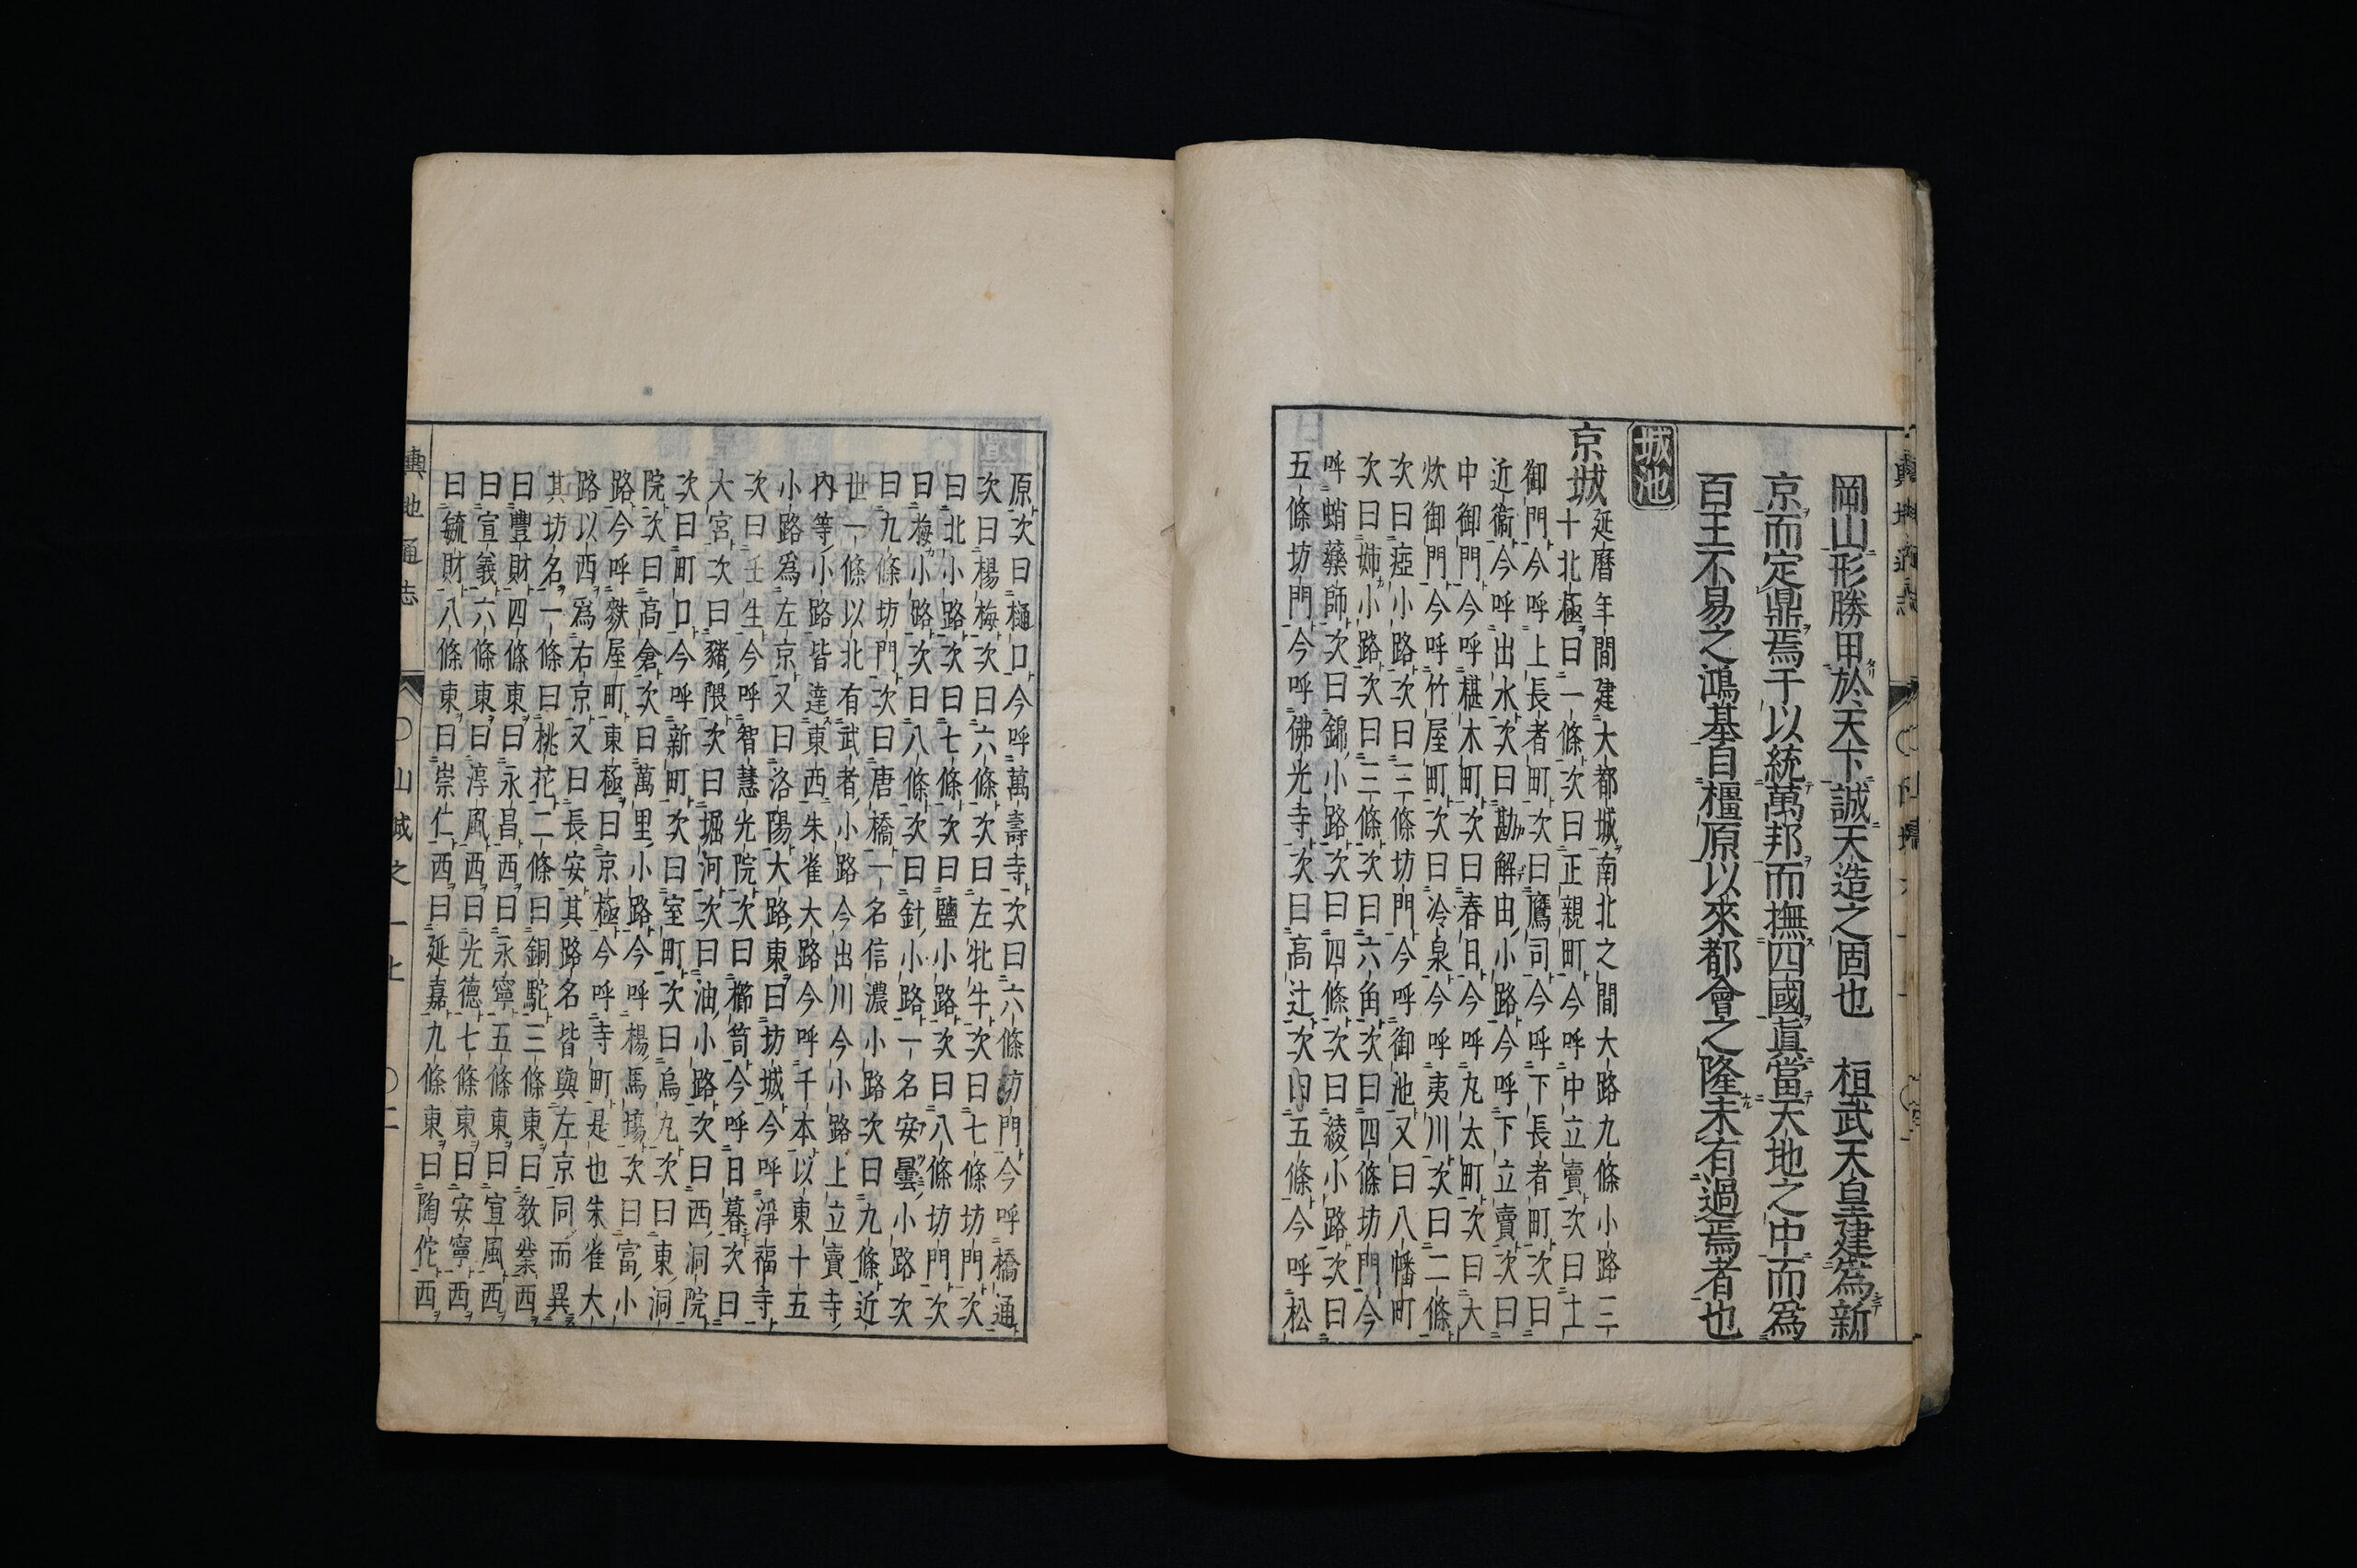 岡山形勝甲於天下誠天造之固也　桓武天皇建爲新
京而定鼎焉于以統萬邦而撫四國眞當天地之中而爲
百王不易之鴻基自橿原以來都會之隆未有過焉者也
城池
京城
延暦年間建大都城南北之間大路九條小路三
十北極曰一條次曰正親町今呼中立賣次曰土
御門今呼上長者町次曰鷹司今呼下長者町次曰
近衞今呼出水次曰勘解由小路今呼下立賣次曰
中御門今呼椹木町次曰春日今呼丸太町次曰大
炊御門今呼竹屋町次曰冷泉今呼夷川次曰二條
次曰瘂小路次曰三條坊門今呼御池又曰八幡町
次曰姉小路次曰三條次曰六角次曰四條坊門今
呼蛸藥師次曰錦小路次曰四條次曰綾小路次曰
五條坊門今呼佛光寺次曰高辻次曰五條今呼松
原次曰樋口今呼萬壽寺次曰六條坊門今呼橋通
次曰楊梅次曰六條次曰左牝牛次曰七條坊門次
曰北小路次曰七條次曰鹽小路次曰八條坊門次
曰梅小路次曰八條次曰針小路一名安曇小路次
曰九條坊門次曰唐橋一名信濃小路次曰九條近
世一條以北有武者小路今出川今小路上立賣寺
内等小路皆達東西朱雀大路今呼千本以東十五
小路爲左京又曰洛陽大路東曰坊城今呼淨福寺
次曰壬生今呼智慧光院次曰櫛笥今呼日暮次曰
大宮次曰豬隈次曰堀河次曰油小路次曰西洞院
次曰町口今呼新町次曰室町次曰烏丸次曰東洞
院次曰高倉次曰萬里小路今呼楊馬場次曰富小
路今呼麩屋町東極曰京極今呼寺町是也朱雀大
路以西爲右京又曰長安其路名皆與左京同而異
其坊名一條曰桃花二條曰銅駝三條東曰教業西
曰豐財四條東曰永昌西曰永寧五條東曰宣風西
曰宣義六條東曰淳風西曰光德七條東曰安寧西
曰毓財八條東曰崇仁西曰延嘉九條東曰陶佗西
輿地通志
〇山城之一上
〇二